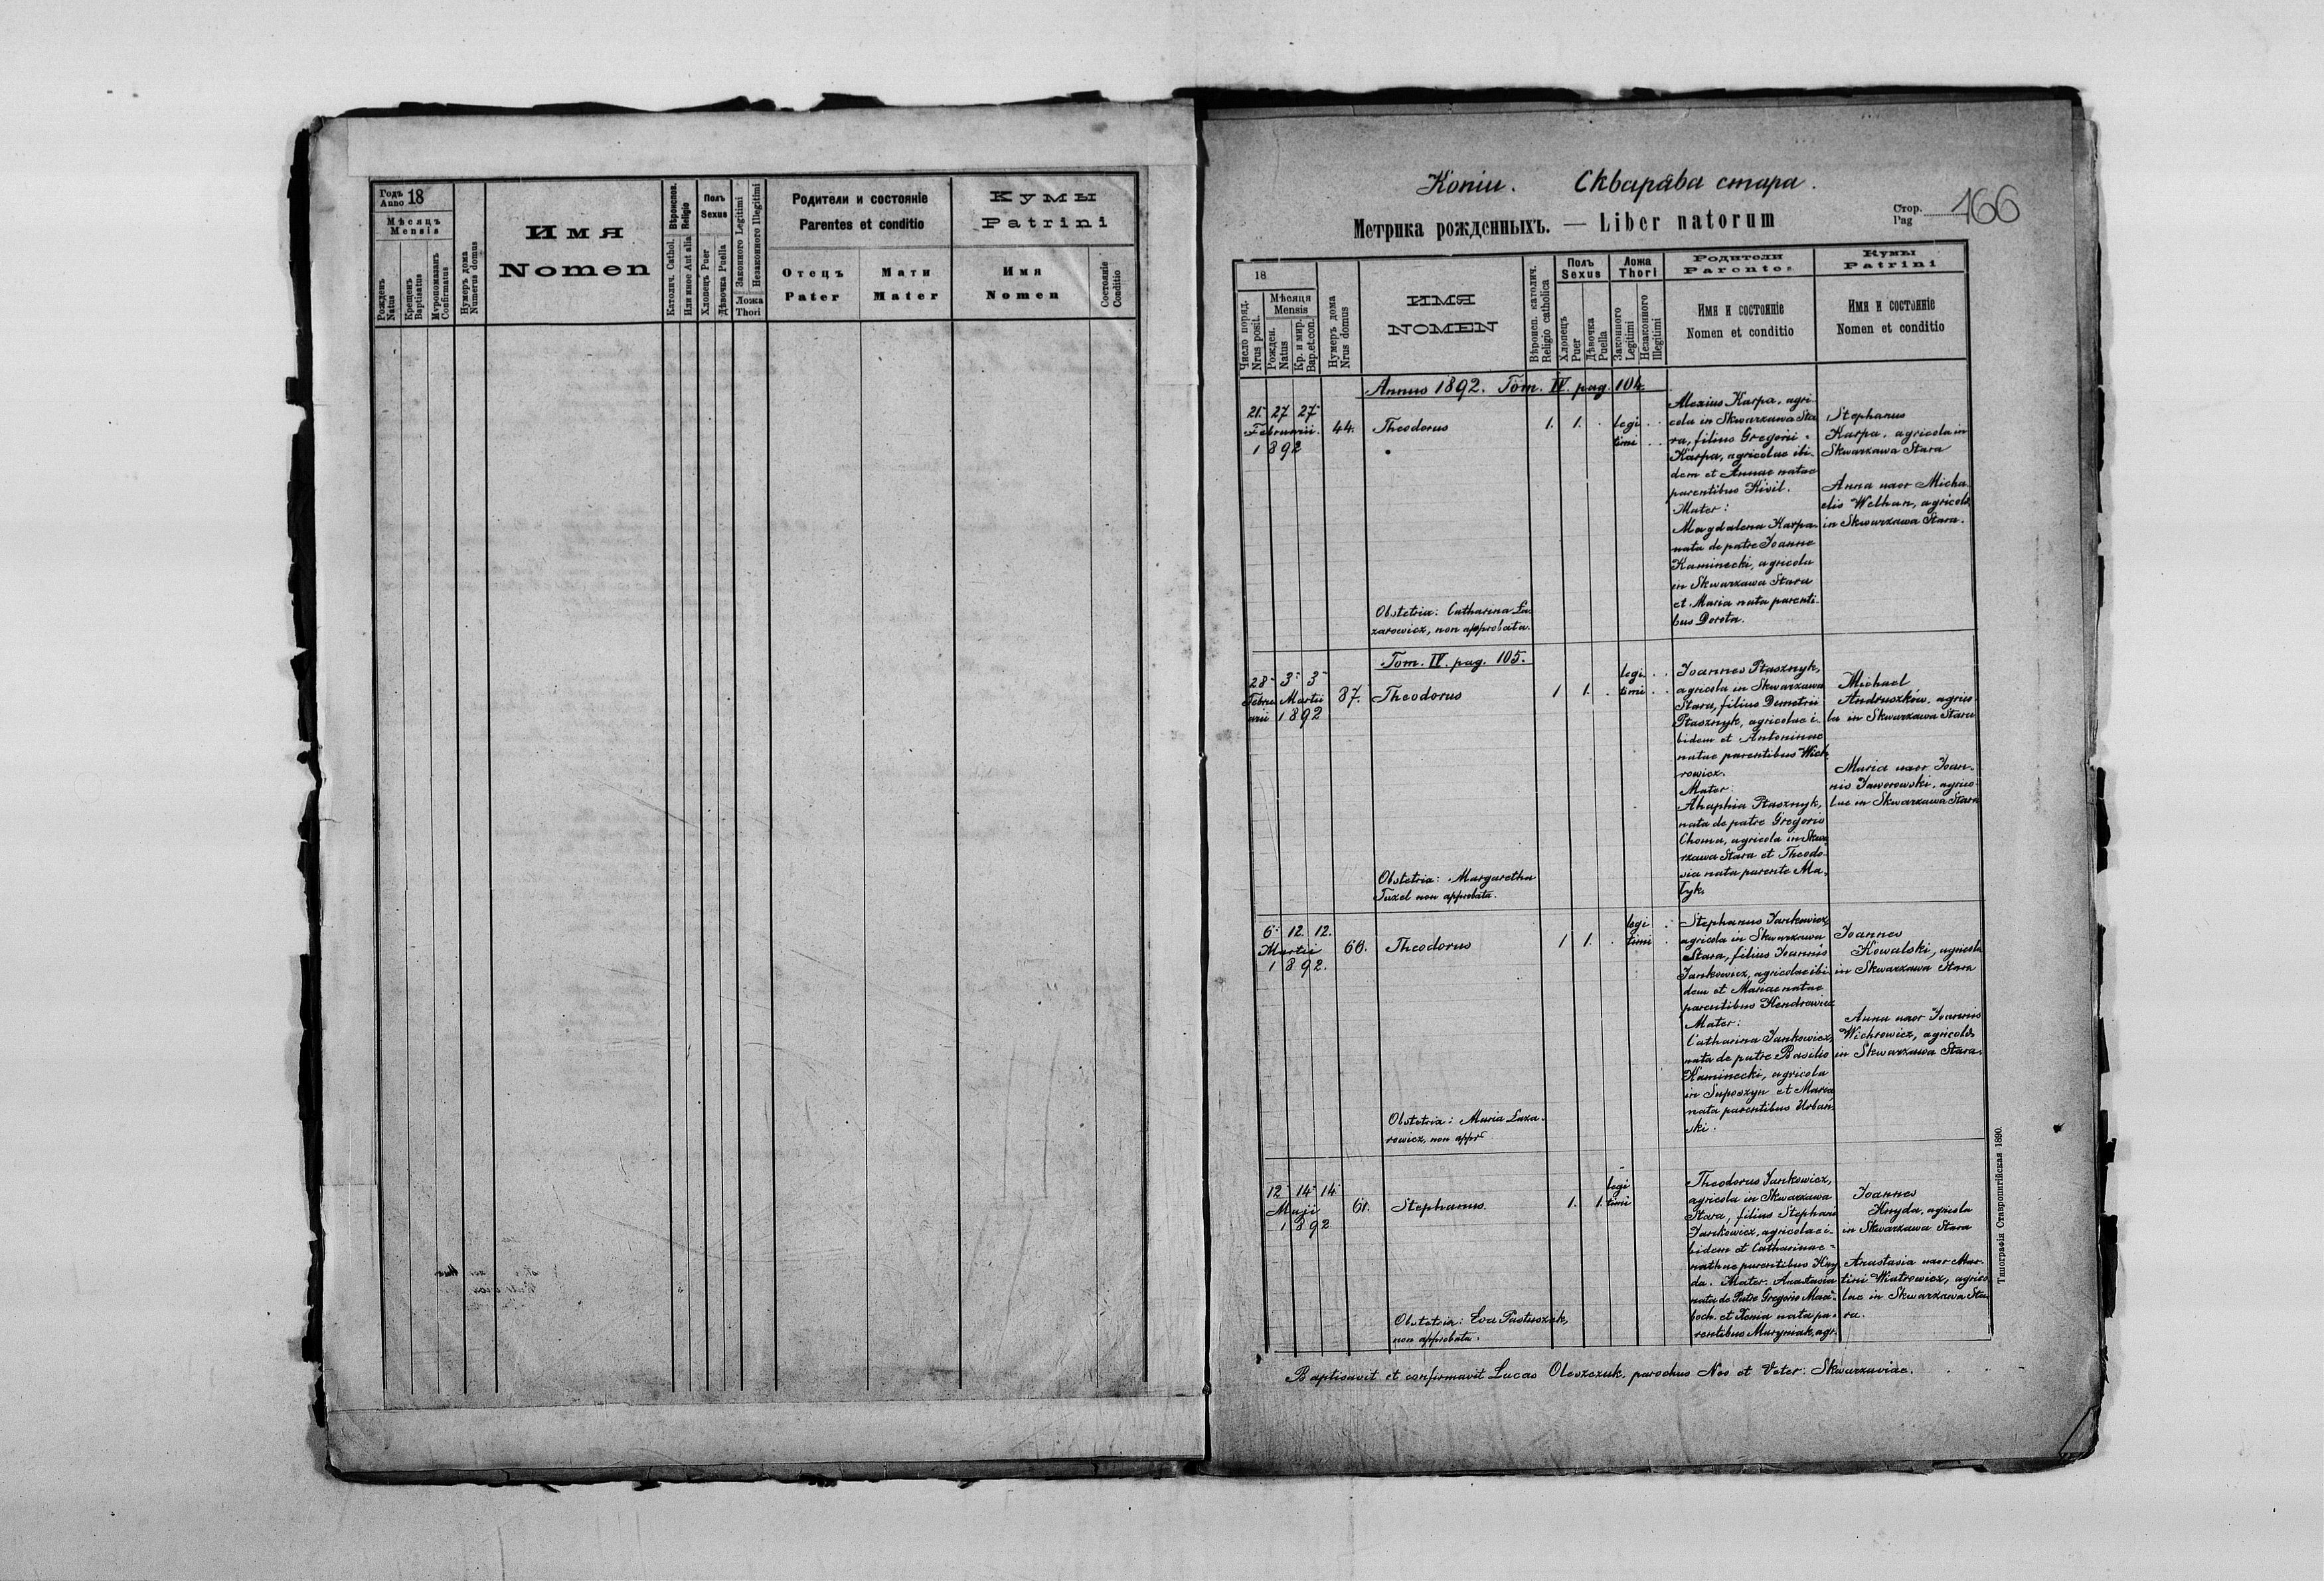 Годъ Anno 18
Мѣсяцъ
Mensis
Рожденъ Natus
Крещенъ Baptisatus
Мѵропомазанъ Confirmatus
Нумеръ дома Numerus domus
Имя
Nomen
Вѣроиспов. Religio
Католич. Cathol.
Или иное Aut alia
Полъ
Sexus
Хлопецъ Puer
Дѣвочка Puella
Законного Legitimi
Незаконного Illegitimi
Ложа
Thori
Родители и состояніе
Parentes et conditio
Отецъ
Pater
Мати
Mater
Кумы
Patrini
Имя
Nomen
Состояніе Conditio
Копіи. Скварѣва стара.
Метрика рожденныхъ. — Liber natorum
Стор.
Pag 166
18
Число поряд. Nrus posit.
Мѣсяця
Mensis
Рожден. Natus
Кр. и мир. Bap.et.con.
Нумеръ дома Nrus domus
ИМЯ
NOMEN
Вѣроисп. католич. Religio catholica
Полъ
Sexus
Хлопецъ Puer
Дѣвочка Puella
Ложа
Thori
Законного Legitimi
Незаконного Illegitimi
Родители
Parentes
Имя и состояніе
Nomen et conditio
Кумы
Patrini
Имя и состояніе
Nomen et conditio
Annus 1892. Tom. IV. pag. 104.
21. 27 27
Februarii
1892
44.
Theodorus
1. 1.
legi
timi
Alexius Karpa, agri
cola in Skwarzawa Sta
ra, filius Gregorii
Karpa, agricolae ibi
dem et Annae natae
parentibus Kivil.
Mater:
Magdalena Karpa
nata de patre Joanne
Kaminecki, agricola
in Skwarzawa Stara
et Maria nata parenti
bus Dorota.
Stephanus
Karpa, agricola in
Skwarzawa Stara
Anna uxor Micha
elis Welhan, agricolae
in Skwarzawa Stara.
Obstetrix: Catharina La
zarowicz, non approbata.
Tom. IV. pag. 105.
28 3 3
Febru Martii
arii 1892
87.
Theodorus
1 1.
legi
timi
Joannes Ptasznyk,
agricola in Skwarzawa
Stara, filius Demetrii
Ptasznyk, agricolae i
bidem et Antoninae
natae parentibus Wich
rowicz.
Mater:
Ahaphia Ptasznyk,
nata de patre Gregorio
Choma, agricola in Skwa
rzawa Stara et Theodo
sia nata parente Ma
łyk.
Michael
Andruszków, agrico
la in Skwarzawa Stara
Maria uxor Joan
nis Jaworowski, agrico
lae in Skwarzawa Stara
Obstetrix: Margaretha
Tuzel non approbata.
6. 12. 12.
Martii
1892.
66.
Theodorus
1 1.
legi
timi
Stephanus Jankowicz,
agricola in Skwarzawa
Stara, filius Joannis
Jankowicz, agricolae ibi
dem et Mariae natae
parentibus Kendrowicz
Mater:
Catharina Jankowicz,
nata de patre Basilio
Kaminecki, agricola
in Soposzyn et Maria
nata parentibus Urban
ski.
Joannes
Kowalski, agricola
in Skwarzawa Stara
Anna uxor Joannis
Wichrowicz, agricolae
in Skwarzawa Stara.
Obstetrix: Maria Laza
rowicz, non appr
12 14 14
Maji
1892
61.
Stephanus.
1. 1.
legi
timi
Theodorus Jankowicz,
agricola in Skwarzawa
Stara, filius Stephani
Jankowicz, agricolae i
bidem et Catharinae
nathae parentibus Kny
da. Mater. Anastasia
nata de Patre Gregorio
boch. et Xenia nata pa
rentibus Maryniak, agr.
Joannes
Knyda, agricola
in Skwarzawa Stara
Anastasia uxor Mar
tini Wiatrowicz, agrico
lae in Skwarzawa Sta
ra.
Obstetrix: Eva Pastuszak,
non approbata.
Baptisavit et confirmavit Lucas Oleszczuk, parochus Neo et Veter. Skwarzaviae.
Типографія Ставропигійская 1890.